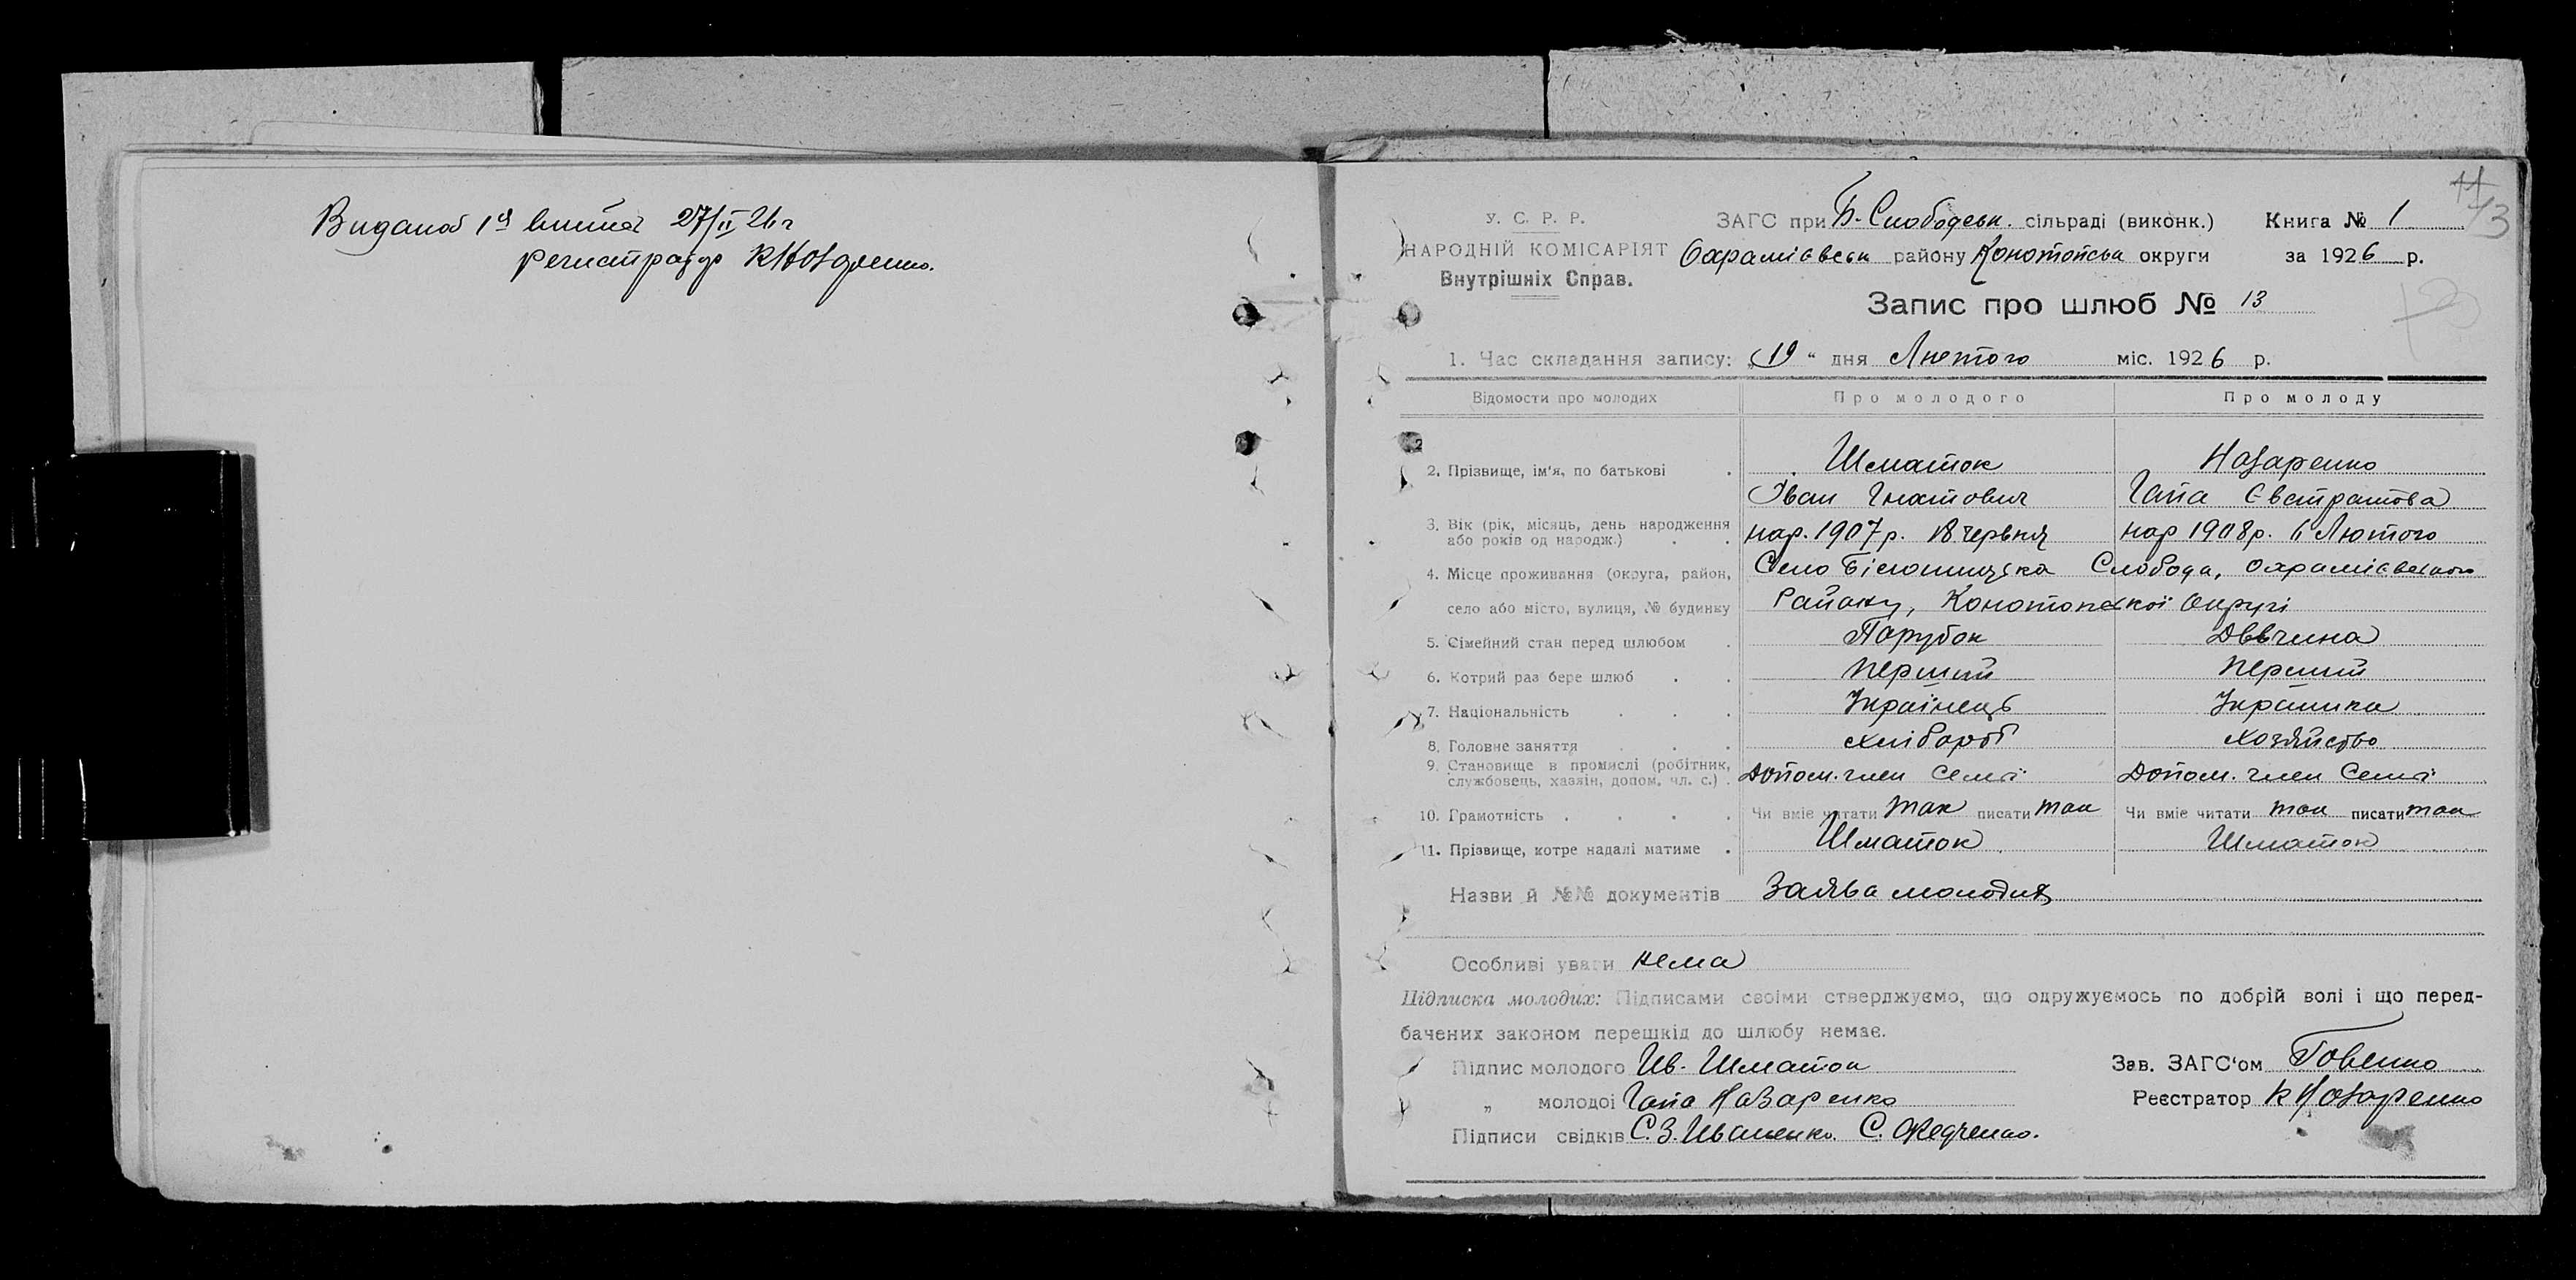 Виданоб 1й витяг 27/II 26 г
регистратор КНозаренко.
11
13
У. С. Р. Р.
НАРОДНІЙ КОМІСАРІЯТ
Внутрішніх Справ.
ЗАГС при Б-Слободськ. сільраді (виконк.) Книга № 1
Охрамієвськ району Конотопськ округи за 1926 р.
Запис про шлюб № 13
1. Час складання запису: „19" дня Лютого міс. 1926 р.
Відомости про молодих Про молодого Про молоду
2. Прізвище, ім'я, по батькові . Шматок Назаренко
Іван Гнатович Гапа Євстратова
3. Вік (рік, місяць, день народження або років од народж.) . . нар. 1907 р. 18 червня нар 1908 р. 6 Лютого
4. Місце проживання (округа, район, Село Білошицька Слобода, Охрамієвського
село або місто, вулиця, № будинку Району, Конотопської Округі
5. Сімейний стан перед шлюбом . Парубок Дівчина
6. Котрий раз бере шлюб . . Перший Перший
7. Національність . . . Українець Українка
8. Головне заняття . . . хлібороб хозяйство
9. Становище в промислі (робітник, службовець, хазяїн, допом. чл. с.) . Допом. член Семї Допом. член Семї
10. Грамотність . . . . Чи вміє читати так писати так Чи вміє читати так писати так
11. Прізвище, котре надалі матиме . Шматок Шматок
Назви й №№ документів Заява молодих
Особливі уваги нема
Підписка молодих: Підписами своїми стверджуємо, що одружуємось по добрій волі і що перед-
бачених законом перешкід до шлюбу немає.
Підпис молодого Ив. Шматок Зав. ЗАГС'ом Говенко
„ молодоі Гапа Назаренко Реєстратор КНозаренко
Підписи свідків С. З. Иваненко. С. Федченко.